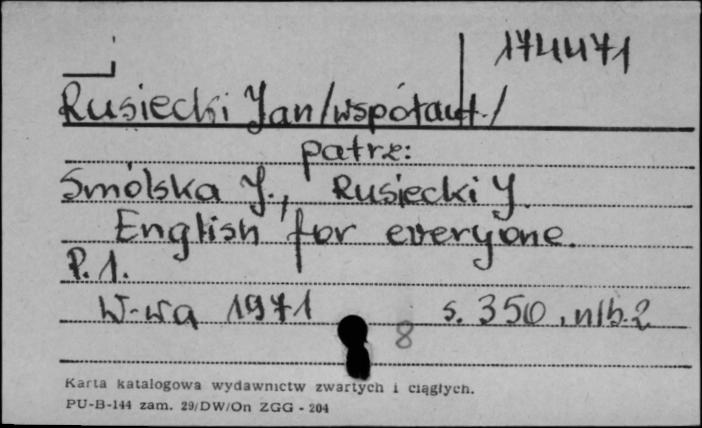 174471
Rusiecki Jan /współaut./
patrz:
Smólska J., Rusiecki J.
English for everyone.
P. 1.
W-wa 1971 8 s. 350, nlb. 2
Karta katalogowa wydawnictw zwartych i ciągłych.
PU-B-144 zam. 29/DW/On ZGG - 204